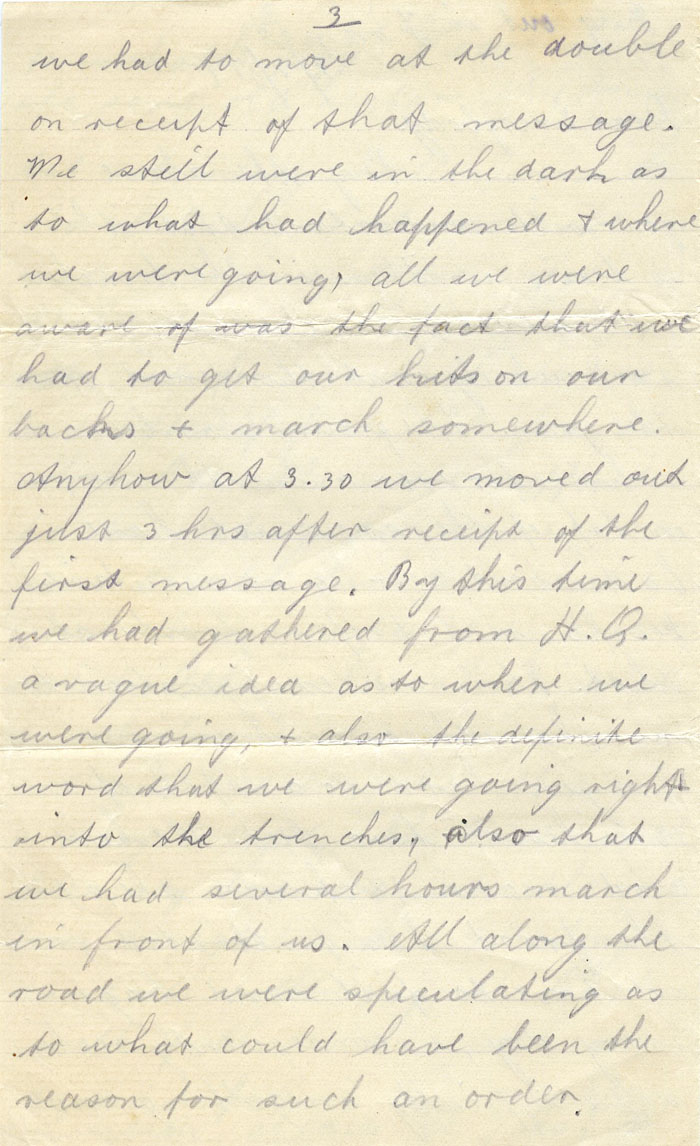 3
we had to move at the double
on receipt of that message.
We still were in the dark as
to what had happened + where
we were going, all we were
aware of was the fact that we
had to get our kits on our
backs + march somewhere.
Anyhow at 3.30 we moved out
just 3 hrs after receipt of the
first message. By this time
we had gathered from H.Q.
a vague idea as to where we
were going, + also the definite
word that we were going right
into the trenches, also that
we had several hours march
in front of us. All along the
road we were speculating as
to what could have been the
reason for such an order.